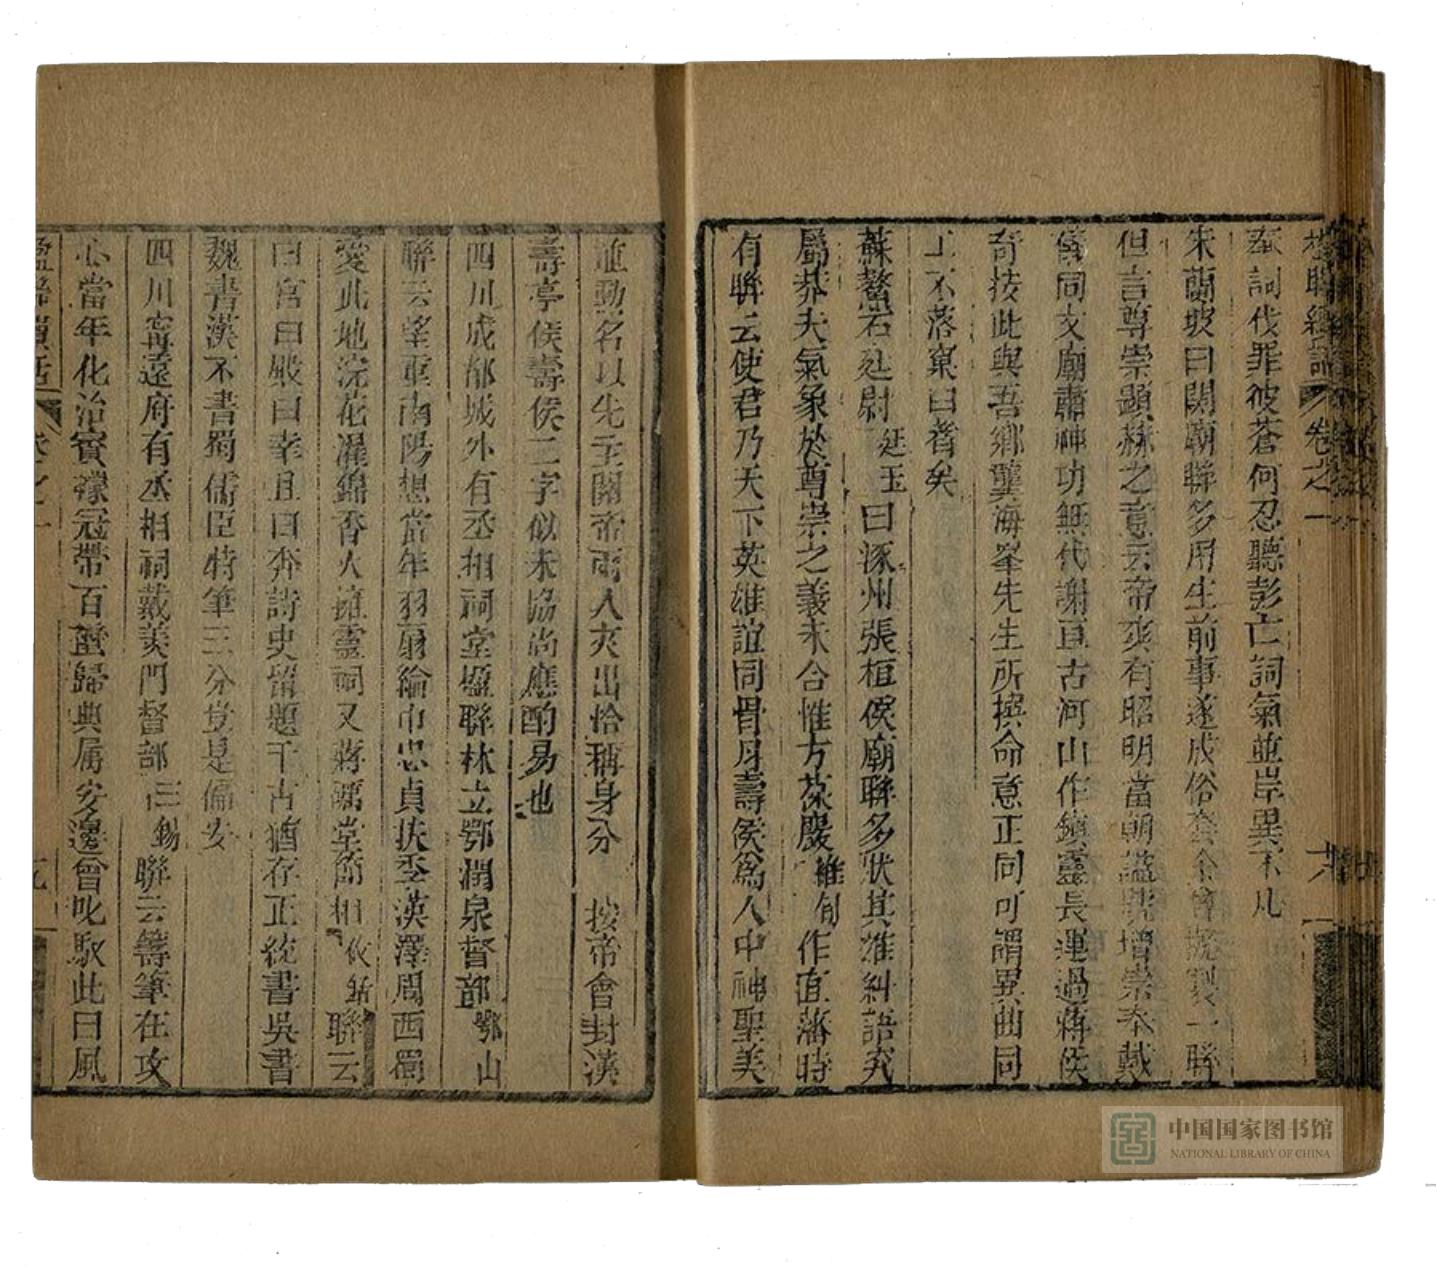 楹聯續話 卷之一
奉詞伐罪彼蒼何忍聽彭亡詞氣並岸異不凡
朱蘭坡曰關廟聯多用生前事遂成俗套余曾撰一聯
但言尊崇顯赫之意云帝亦有昭明當朝諡號增崇奉戴
儀同文廟肅神功無代謝亘古河山作鎮靈長運過蔣侯
奇技此與吾鄉龔海峯先生所撰命意正同可謂異曲同
工不落窠臼者矣
蘇鰲石廷尉廷玉曰涿州張桓侯廟聯多狀其雄糾語究
屬莽夫氣象於尊崇之義未合惟方葆巖維甸作直藩時
有聯云使君乃天下英雄誼同骨月壽侯爲人中神聖美
並勳名以先主關帝兩人夾出恰稱身分 按帝會封漢
壽亭侯壽侯二字似未協尚應酌易也
四川成都城外有丞相祠堂楹聯林立鄂潤泉督部鄂山
聯云望重南陽想當年羽扇綸巾忠貞扶季漢澤周西蜀
愛此地浣花濯錦香火擁靈祠又蔣礪堂節相攸銛聯云
曰宮曰殿曰幸且曰奔詩史留題千古猶存正統書吳書
魏書漢不書蜀儒臣特筆三分豈是偏安
四川甯遠府有丞相祠戴羡門督部三錫聯云籌筆在攻
心當年化洽賨㠓冠帶百蠻歸典属安邊曾叱馭此日風
楹聯續話 卷之一